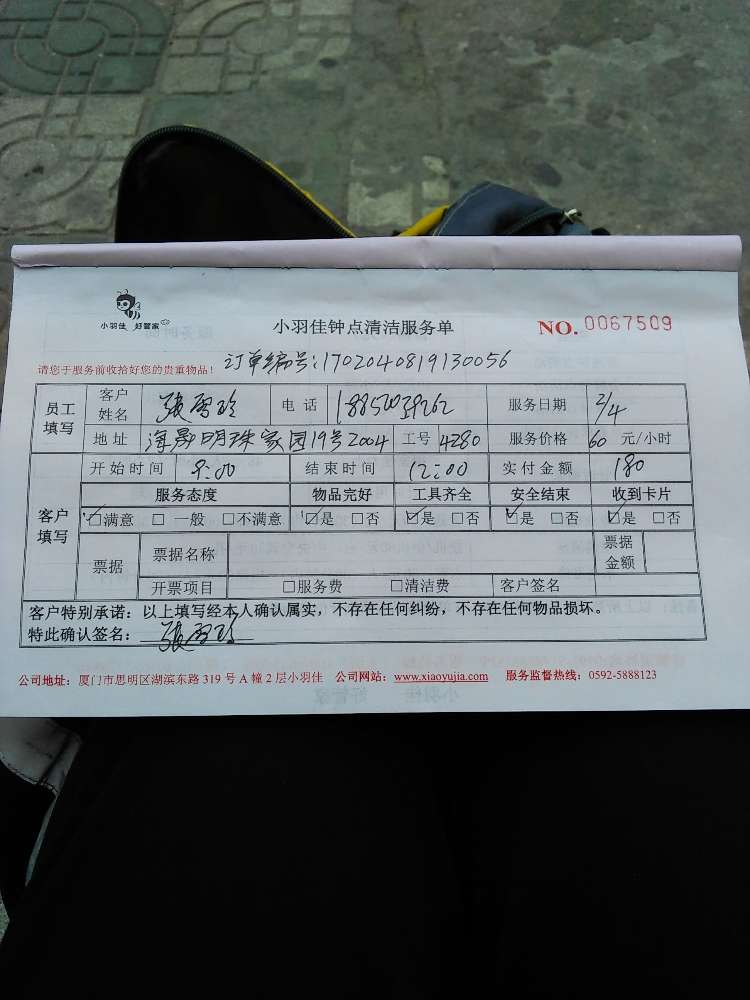 小羽佳 好管家
小羽佳钟点清洁服务单
NO. 0067509
请您于服务前收拾好您的贵重物品！ 订单编号:1702040819130056
员工填写 客户姓名 張雪玲 电话 服务日期 2/4
地址 海晟明珠家园19号2004 工号 4280 服务价格 60 元/小时
客户填写 开始时间 9:00 结束时间 12:00 实付金额 180
服务态度 物品完好 工具齐全 安全结束 收到卡片
☑满意 □一般 □不满意 ☑是 □否 ☑是 □否 ☑是 □否 ☑是 □否
票据 票据名称 票据金额
开票项目 □服务费 □清洁费 客户签名
客户特别承诺：以上填写经本人确认属实，不存在任何纠纷，不存在任何物品损坏。
特此确认签名： 張雪玲
公司地址：厦门市思明区湖滨东路 319 号 A 幢 2 层小羽佳 公司网站：www.xiaoyujia.com 服务监督热线：0592-5888123